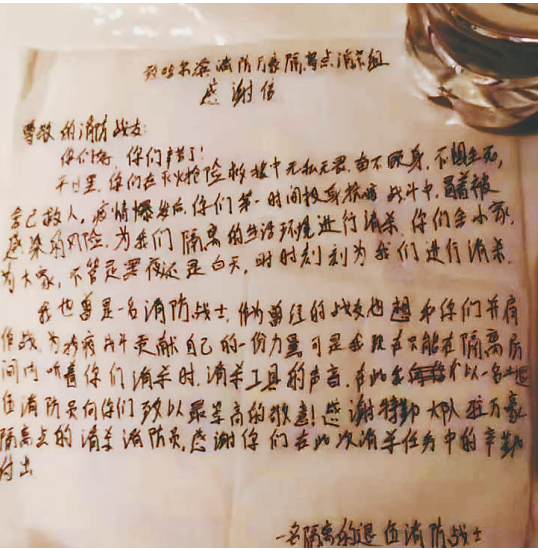 致哈尔滨消防万豪隔离点消杀组
感谢信
尊敬的消防战友:
你们好,你们辛苦了!
平日里,你们在灭火抢险救援中无私无畏,奋不顾身,不顾生死,
舍己救人,疫情爆发后,你们第一时间投身抗疫战斗中,冒着被
感染的风险,为我们隔离的生活环境进行消杀,你们舍小家,
为大家,不管是黑夜还是白天,时时刻刻为我们进行消杀.
我也曾是一名消防战士,作为曾经的战友也想和你们并肩
作战,为抗疫战斗贡献自己的一份力量可是我现在只能在隔离房
间内听着你们消杀时,消杀工具的声音,在此我以一名退
伍消防员向你们致以最崇高的敬意!感谢特勤大队驻万豪
隔离点的消杀消防员,感谢你们在此次消杀任务中的辛勤
付出
一名隔离的退伍消防战士